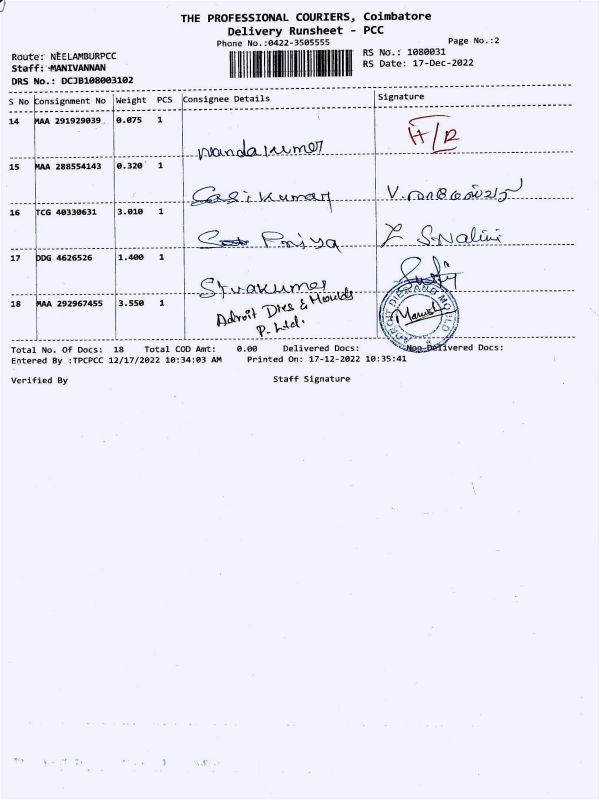 THE PROFESSIONAL COURIERS, Coimbatore
Delivery Runsheet - PCC
Phone No.:0422-3505555
Page No.:2
Route: NEELAMBURPCC
RS No.: 1080031
Staff: MANIVANNAN
RS Date: 17-Dec-2022
DRS No.: DCJB108003102
S No Consignment No Weight PCS Consignee Details Signature
14 MAA 291929039 0.075 1
Nandakumar H/R
15 MAA 288554143 0.320 1
Sasikumar V.
16 TCG 40330631 3.010 1
Priya S. Nalini
17 DDG 4626526 1.400 1
Sivakumar
18 MAA 292967455 3.550 1
Adroit Dies & Moulds
P. Ltd.
Total No. Of Docs: 18 Total COD Amt: 0.00 Delivered Docs: Non-Delivered Docs:
Entered By :TPCPCC 12/17/2022 10:34:03 AM Printed On: 17-12-2022 10:35:41
Verified By Staff Signature